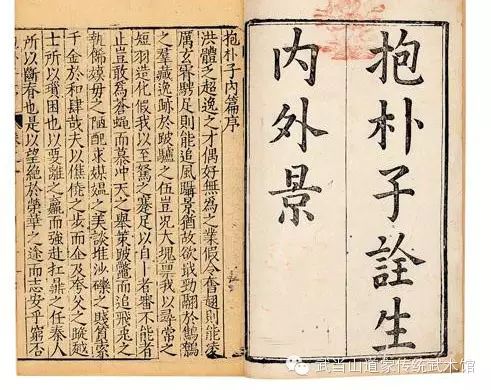 抱朴子詮生
内外景
抱朴子内篇序
洪體乏超逸之才偶好無為之業假令奮翅則能凌
厲玄霄騁足則能追風躡景猶故欲戢勁翮於鷦鷯
之羣藏逸跡於跛驢之伍豈况大塊禀我以尋常之
短羽造化假我以至駑之蹇足以自卜者審不能者
止豈敢為蒼蠅而慕冲天之舉策跛鼈而追飛兎之
軌飾嫫母之陋醜求媒媼之美談堆沙礫之賤質索
千金於和肆哉夫以僬僥之步而企及夸父之蹤
士所以躓困也以要離之羸而強赴扛鼎之任秦人
所以斷脊也是以望絶於榮華之途而志安乎窮否
武当山道家传统武术馆